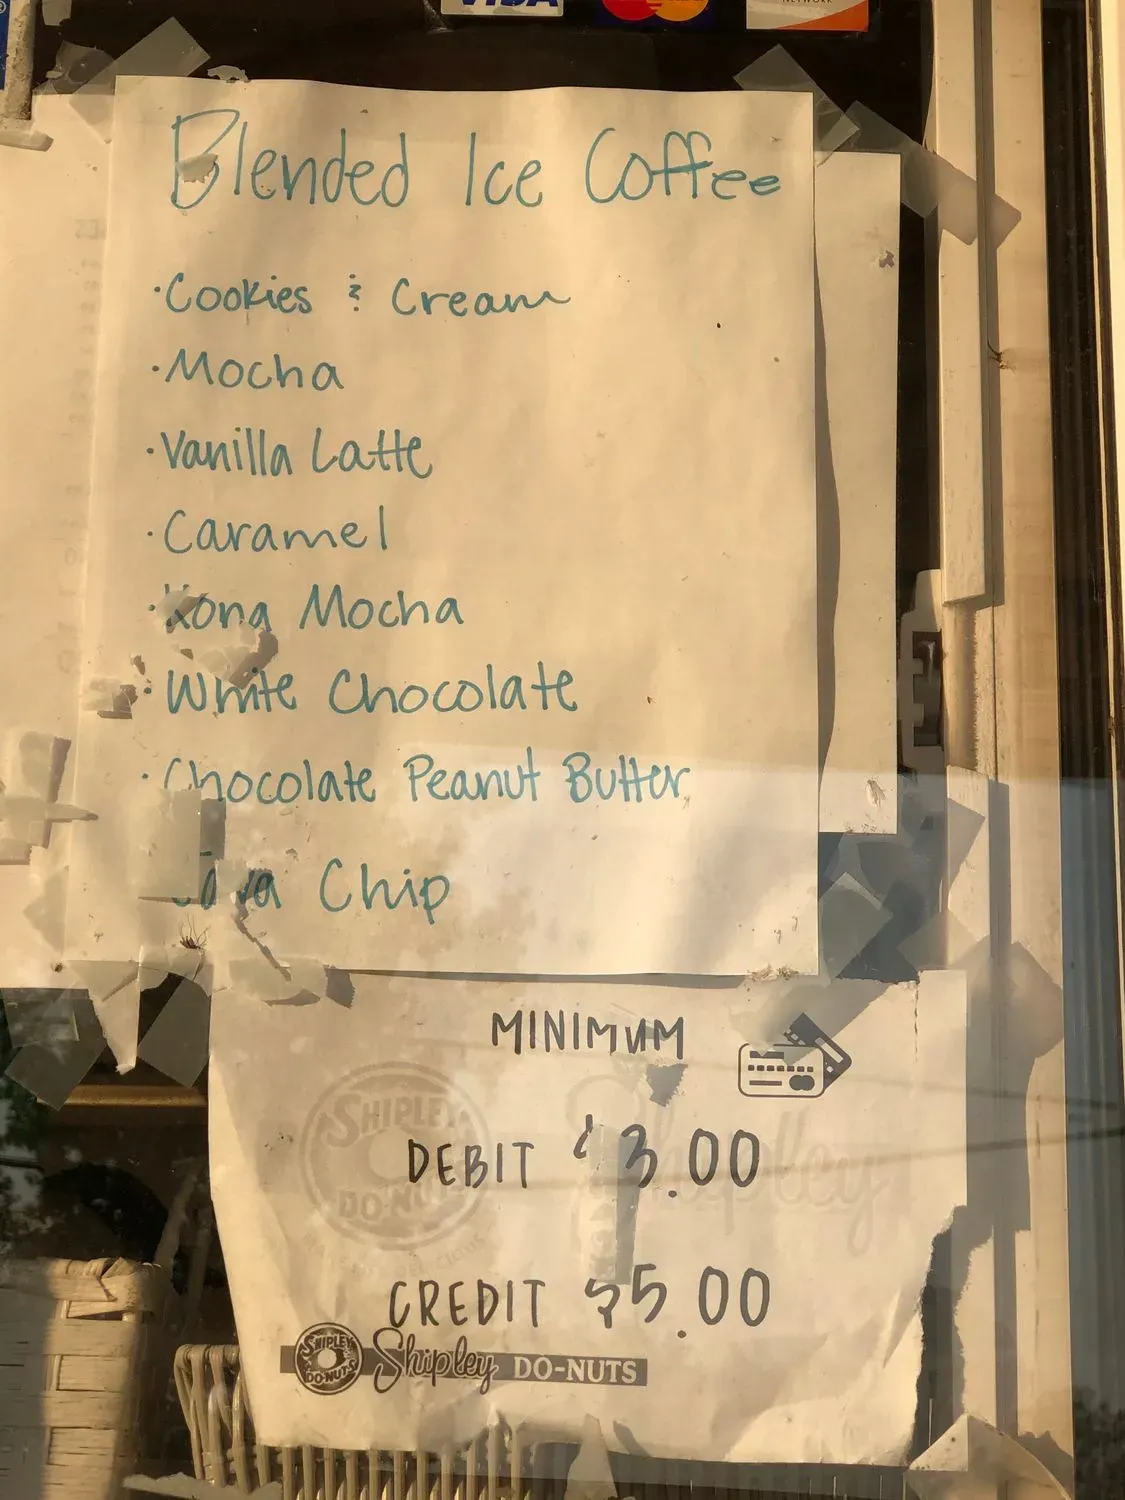 VISA
NETWORK
Blended Ice Coffee
·Cookies & Cream
·Mocha
·Vanilla Latte
·Caramel
·Kona Mocha
·White Chocolate
·Chocolate Peanut Butter
Java Chip
MINIMUM
DEBIT $3.00
CREDIT $5.00
SHIPLEY
DO-NUTS
Shipley
SHIPLEY
DO-NUTS
Shipley DO-NUTS